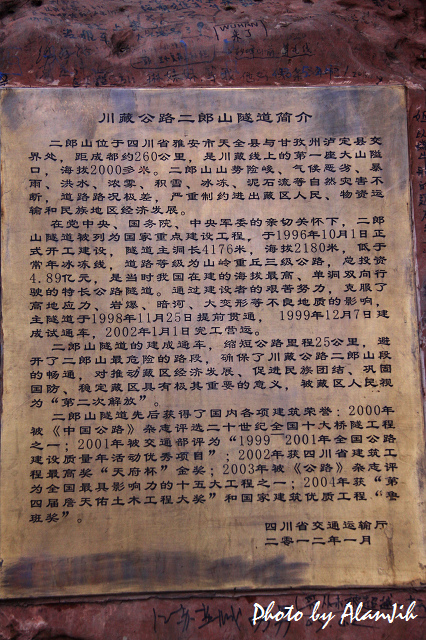 (WUHAN)
来了
川藏公路二郎山隧道简介
二郎山位于四川省雅安市天全县与甘孜州泸定县交
界处，距成都约260公里，是川藏线上的第一座大山隘
口，海拔2000多米。二郎山山势险峻、气候恶劣、暴
雨、洪水、浓雾、积雪、冰冻、泥石流等自然灾害不
断，道路路况极差，严重制约进出藏区人民、物资运
输和民族地区经济发展。
在党中央、国务院、中央军委的亲切关怀下，二郎
山隧道被列为国家重点建设工程，于1996年10月1日正
式开工建设，隧道主洞长4176米、海拔2180米，低于
常年冰冻线，道路等级为山岭重丘三级公路，总投资
4.89亿元，是当时我国在建的海拔最高、单洞双向行
驶的特长公路隧道。通过建设者的艰苦努力，克服了
高地应力、岩爆、暗河、大变形等不良地质的影响，
主隧道于1998年11月25日提前贯通，1999年12月7日建
成试通车，2002年1月1日完工营运。
二郎山隧道的建成通车，缩短公路里程25公里，避
开了二郎山最危险的路段，确保了川藏公路二郎山段
的畅通，对推动藏区经济发展、促进民族团结、巩固
国防、稳定藏区具有极其重要的意义，被藏区人民视
为“第二次解放”。
二郎山隧道先后获得了国内各项建筑荣誉：2000年
被《中国公路》杂志评选二十世纪全国十大桥隧工程
之一；2001年被交通部评为“1999—2001年全国公路
建设质量年活动优秀项目”；2002年获四川省建筑工
程最高奖“天府杯”金奖；2003年被《公路》杂志评
为全国最具影响力的十五大工程之一；2004年获“第
四届詹天佑土木工程大奖”和国家建筑优质工程“鲁
班奖”。
四川省交通运输厅
二零一二年一月
Photo by AlanJih